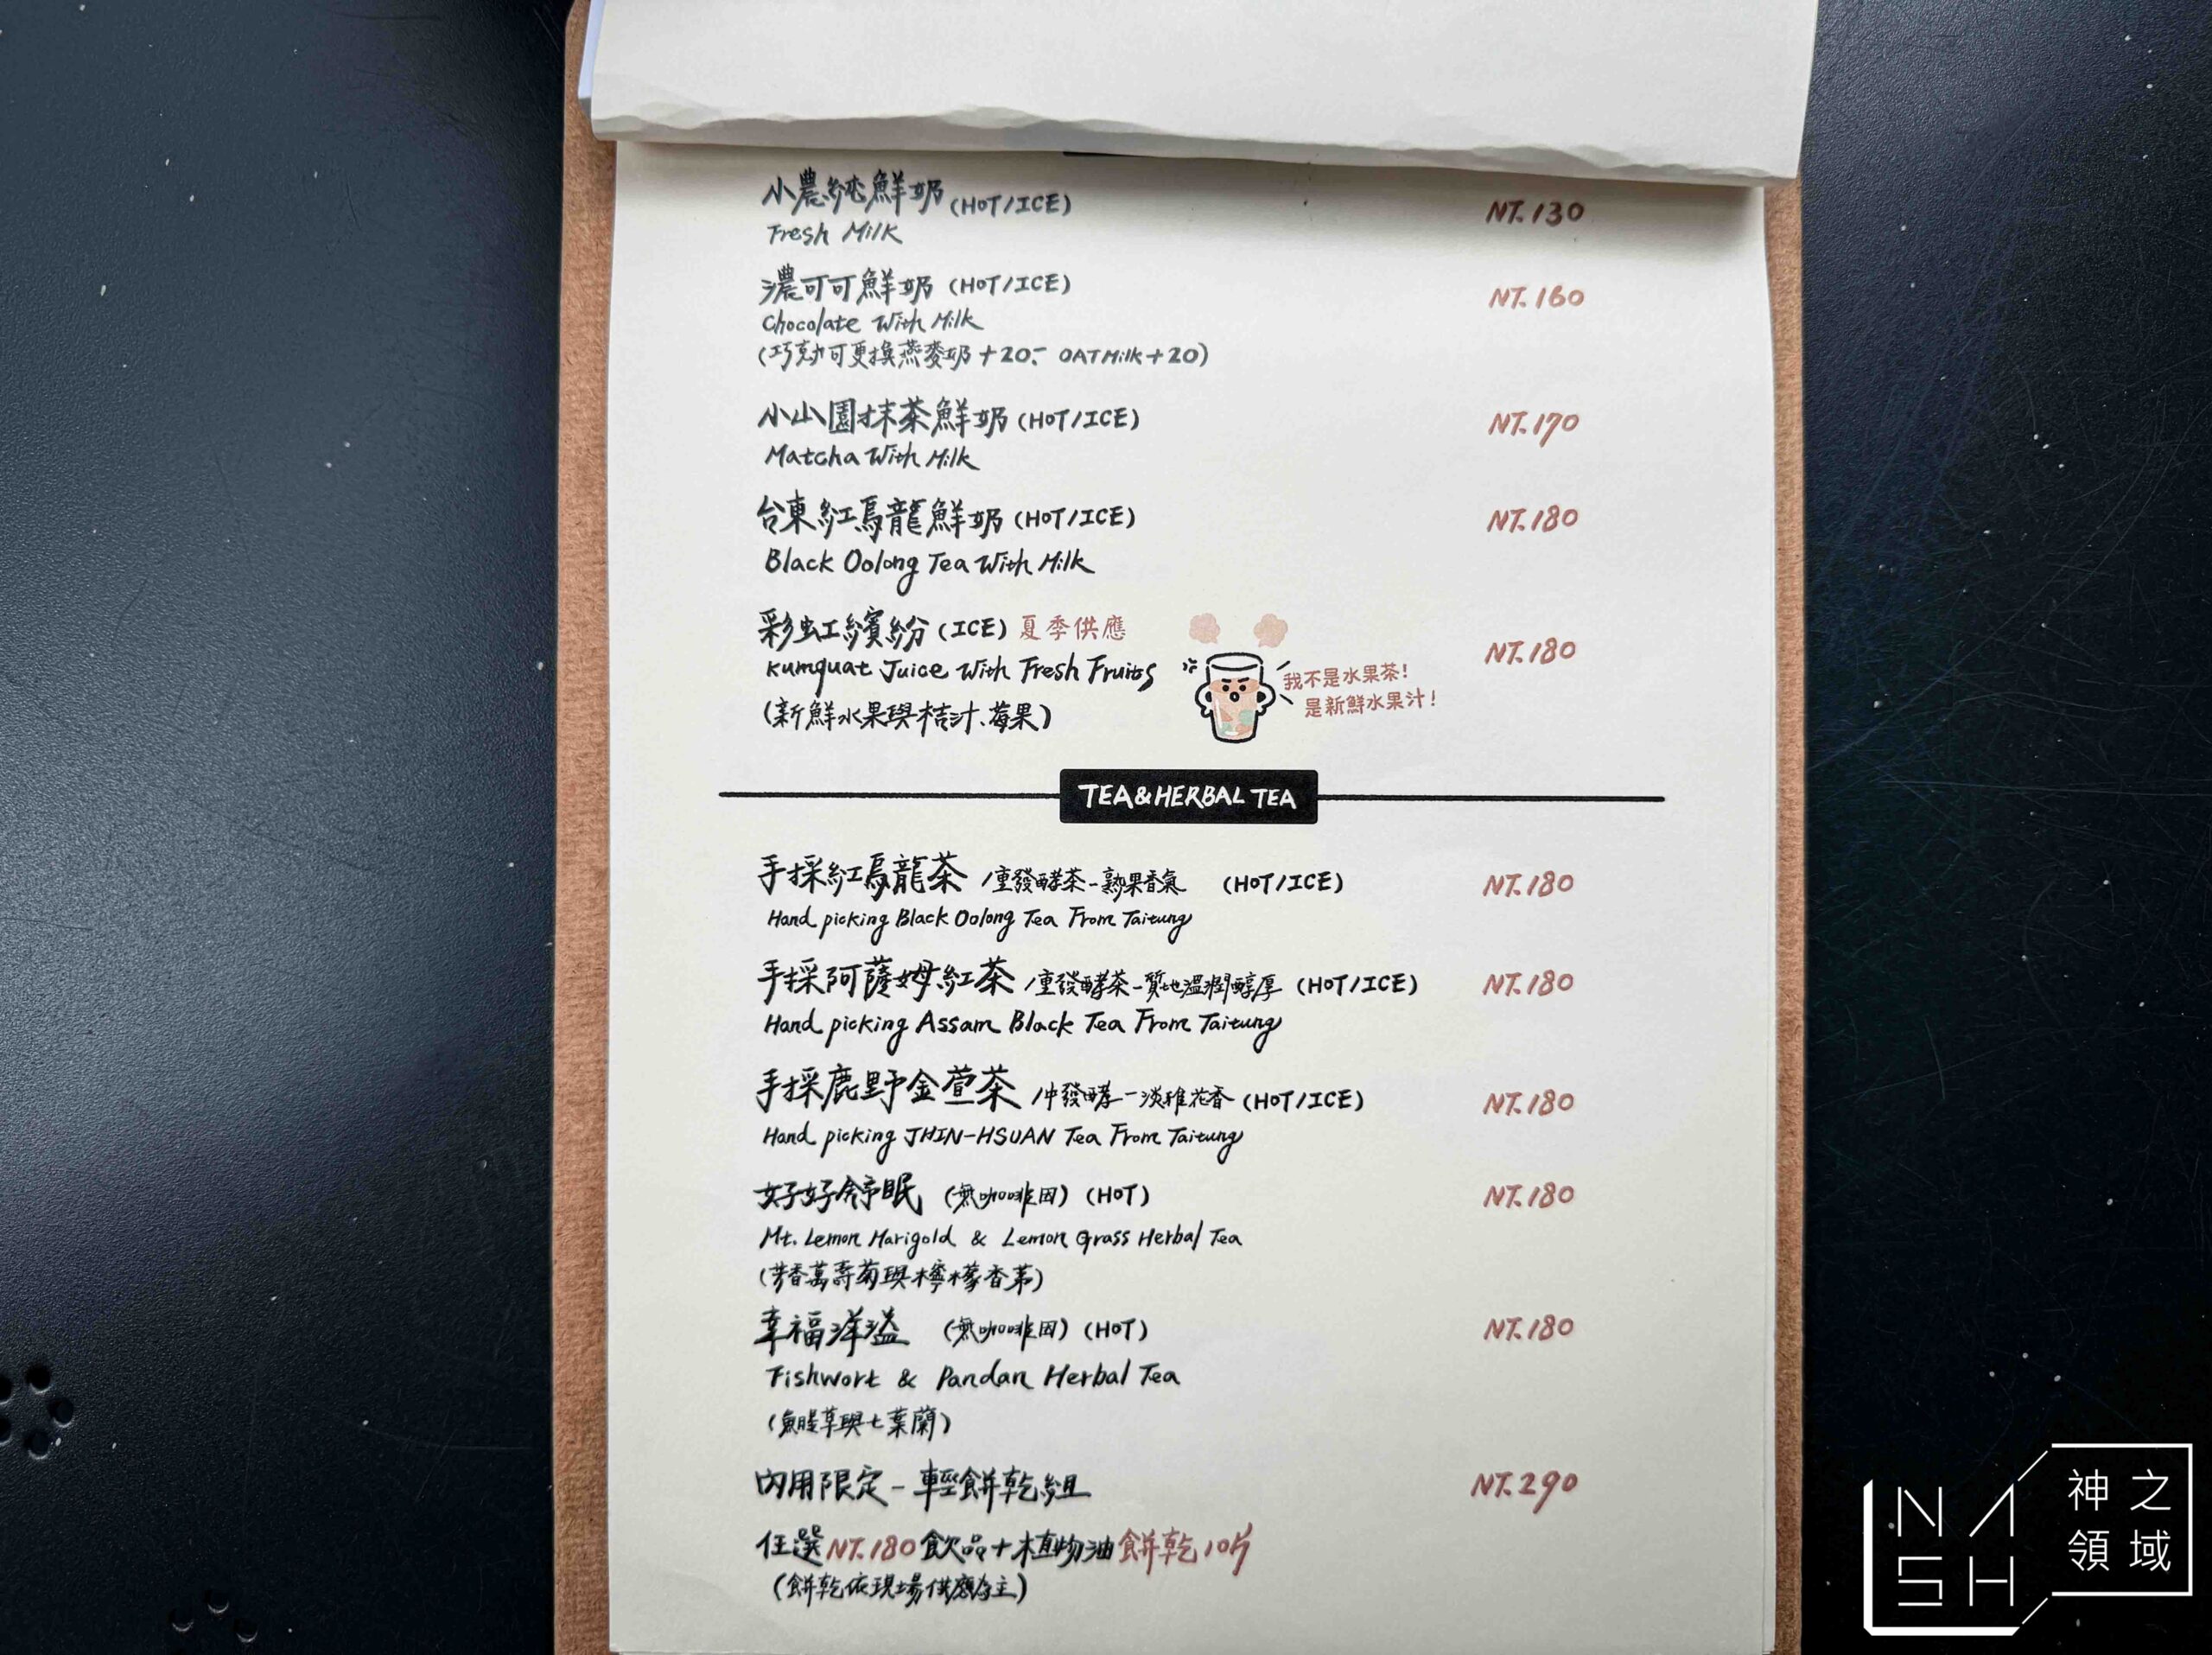 小農純鮮奶 (HOT/ICE) NT.130
Fresh Milk
濃可可鮮奶 (HOT/ICE) NT.160
Chocolate With Milk
(巧克力可更換燕麥奶+20.- OAT Milk+20)
小山園抹茶鮮奶 (HOT/ICE) NT.170
Matcha With Milk
台東紅烏龍鮮奶 (HOT/ICE) NT.180
Black Oolong Tea With Milk
彩虹繽紛 (ICE) 夏季供應 NT.180
Kumquat Juice With Fresh Fruits
(新鮮水果與桔汁、莓果)
我不是水果茶!
是新鮮水果汁!
TEA&HERBAL TEA
手採紅烏龍茶 /重發酵茶-熟果香氣 (HOT/ICE) NT.180
Hand picking Black Oolong Tea From Taitung
手採阿薩姆紅茶 /重發酵茶-質地溫潤醇厚 (HOT/ICE) NT.180
Hand picking Assam Black Tea From Taitung
手採鹿野金萱茶 /中發酵-淡雅花香 (HOT/ICE) NT.180
Hand picking JHIN-HSUAN Tea From Taitung
好好舒眠 (無咖啡因) (HOT) NT.180
Mt. Lemon Marigold & Lemon Grass Herbal Tea
(芳香萬壽菊與檸檬香茅)
幸福洋溢 (無咖啡因) (HOT) NT.180
Fishwort & Pandan Herbal Tea
(魚腥草與七葉蘭)
內用限定-輕餅乾組 NT.290
任選NT.180飲品+植物油餅乾10片
(餅乾依現場供應為主)
NASH
神之
領域